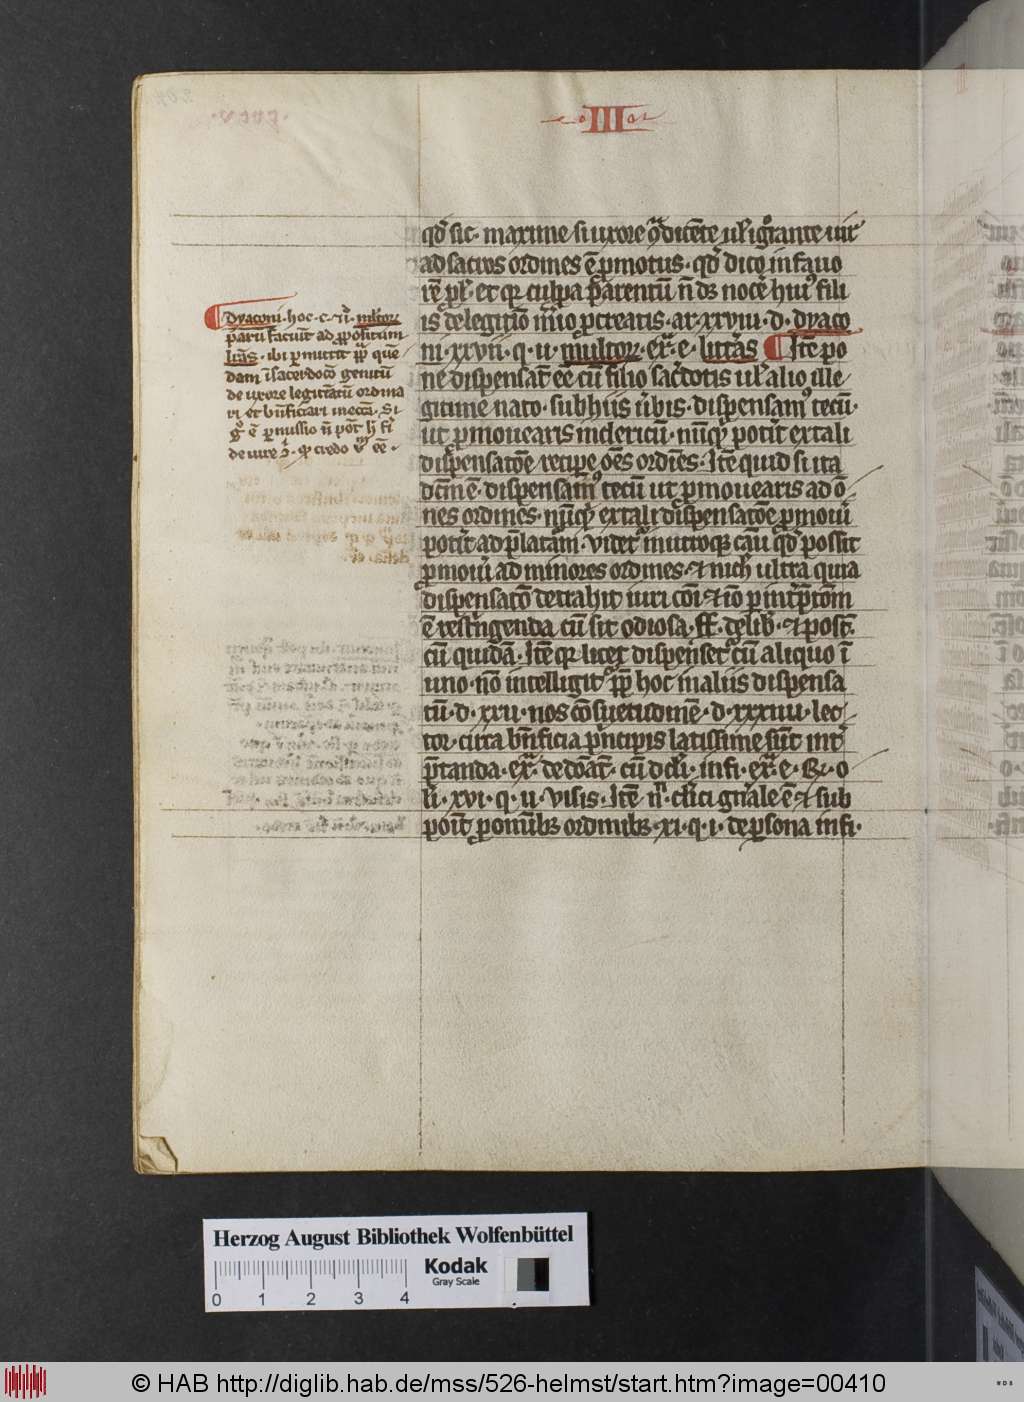 III
qd̄ sic· maxime si uxore ꝯdicēte ul̓ ignorante uir
ad sacros ordines ē ꝑmotus· qd̄ dico in fauo
rē ꝓl̓· et qr culpa parentū n̄ dꝫ nocē huiꝰ fili
is de legitīo m̄r̄io ꝓcreatis· ar· xxviii· d· dyaco
ni· xxvii· q· ii· multorꝫ· ex̄· e· litt̄as ¶ Itē po
ne dispensat̄ eē cū filio sac̄dotis ul̓ alio ille
gitime nato· sub hiis ūbis· dispensamꝰ tecū·
ut ꝓmouearis in clericū· nūqͥd potit̄ ex tali
dispensatōe recipe oēs ordīes· Itē quid si ita
dc̄m ē· dispensamꝰ tecū ut ꝓmouearis ad ō
nes ordines· nūqͥd ex tali dispensatōe ꝓmoūi
potit̄ ad p̄latam· Videt̄ in utroqꝫ cāu qd̄ possit
ꝓmoūi ad minores ordines· ⁊ nich̓ ultra quia
dispensatō detrahit iuri cōi ⁊ iō ꝑ int̄p̄tōm
ē rest̄ngenda cū sit odiosa· ff· de lib̄· ⁊ post̄·
cū quidā· Itē qr licet dispenset̄ cū aliquo ī
uno· nō intelligit̄ ꝓp̄ hoc in aliis dispensa
tū· d· xxii· nos cōsuetudinē· d· xxxiiii· lec
tor· circa bn̄ficia p̄ncipis latissime sūt int̄
p̄tanda· ex̄· de donat̄· cū dil̄i· infi· ex̄· e· §· o
li· xvi· q· ii· visis· Itē n̄· cl̄ici gn̄ale ē ⁊ sub
poīt̄ ꝑ omībꝫ ordinibꝫ· xi· q· i· de ꝑsona infi·
¶ dyaconi· hoc· c· ⁊ n̄· multorꝫ
parū faciūt ad ꝓpositum
litt̄as· ibi ꝑmittit pp̄ quē
dam ī sac̄docō genitū
de uxore legit̄atū ordina
ri et bn̄ficiari in eccā· Si
gͦ ē ꝑmissio n̄ pot̄ h̄ fi
de iure ꝯͥ· qd̄ credo v̄m eē·
Herzog August Bibliothek Wolfenbüttel
Kodak
Gray Scale
0 1 2 3 4
© HAB http://diglib.hab.de/mss/526-helmst/start.htm?image=00410